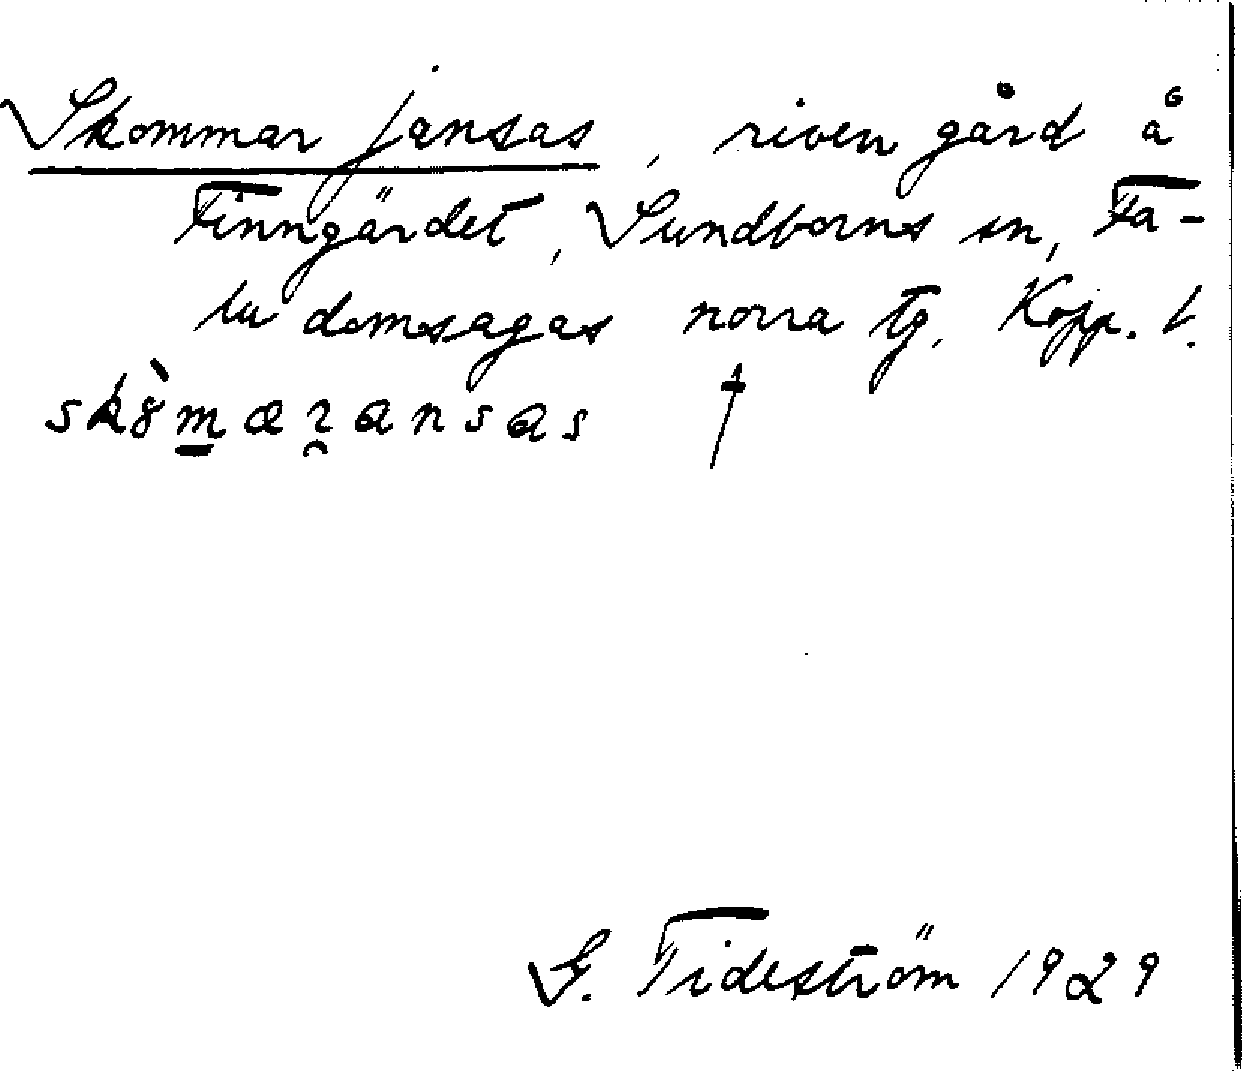 Skommar jansas, riven gård å
Finngärdet, Sundborns sn, Fa-
lu domsagas norra tg. Kopp. l.
skòmaransas †
G. Tideström 1929